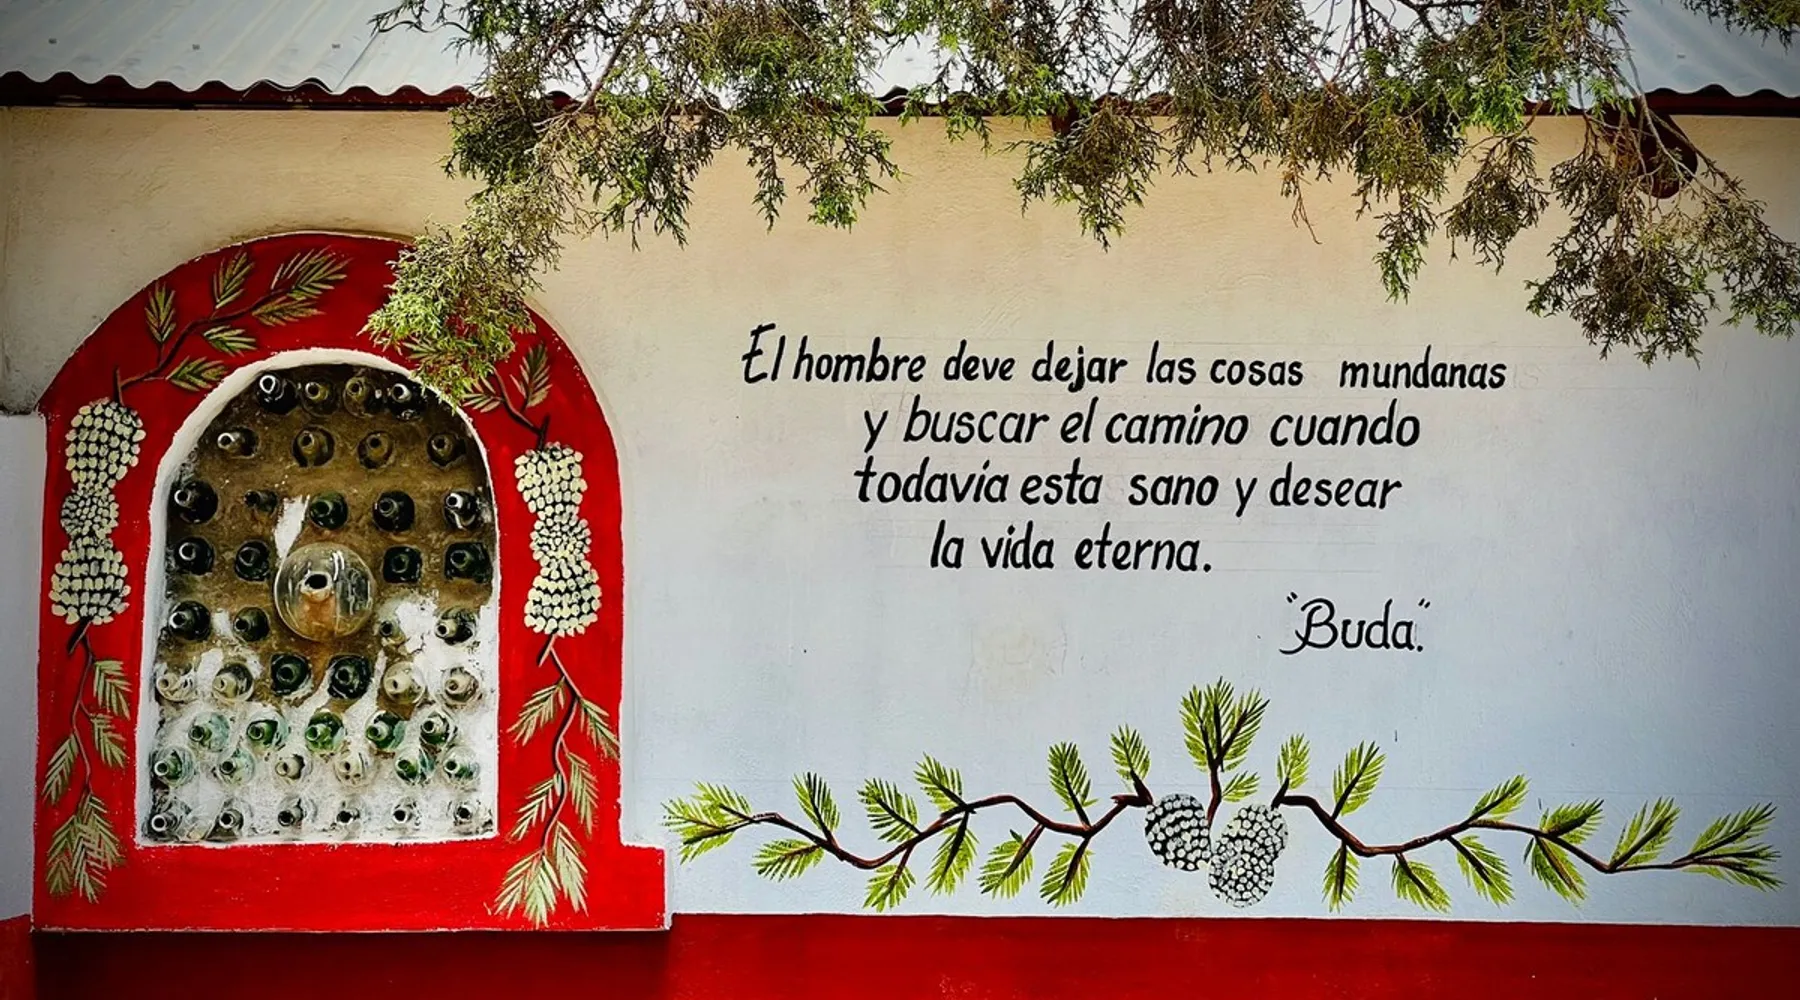 El hombre deve dejar las cosas mundanas
y buscar el camino cuando
todavía esta sano y desear
la vida eterna.
"Buda."